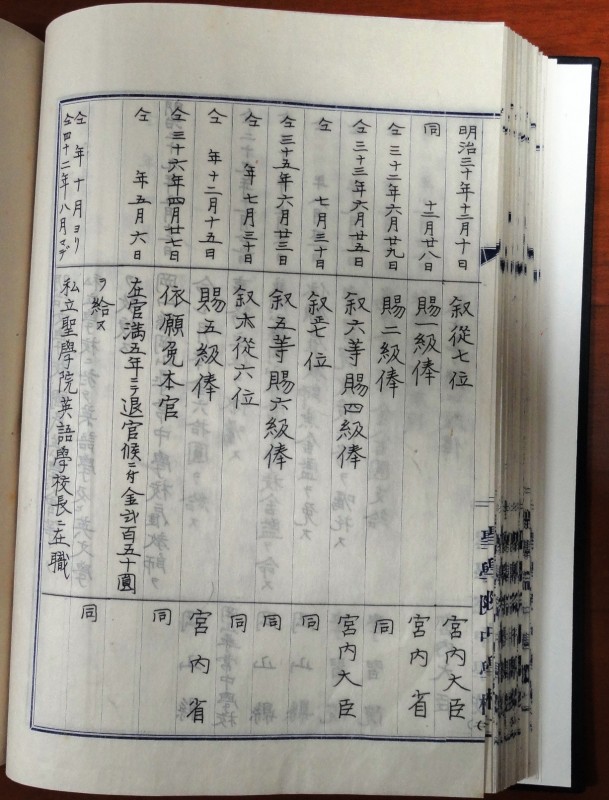 明治三十年十二月十日 叙從七位 宮内大臣
同 十二月廿八日 賜一級俸 宮内省
仝 三十二年六月廿九日 賜二級俸 同
仝 三十三年六月廿五日 叙六等賜四級俸 宮内大臣
仝 年七月三十日 叙正七位 同
仝 三十五年六月廿三日 叙五等賜六級俸 同
仝 年七月三十日 叙從六位 同
仝 年十二月十五日 賜五級俸 宮内省
仝 三十六年四月廿七日 依願免本官 同
仝 年五月六日 在官満五年ニテ退官候ニ付金弐百五十圓
ヲ給ス 同
仝 年十月ヨリ
仝四十二年八月マデ 私立聖學院英語學校長ニ在職